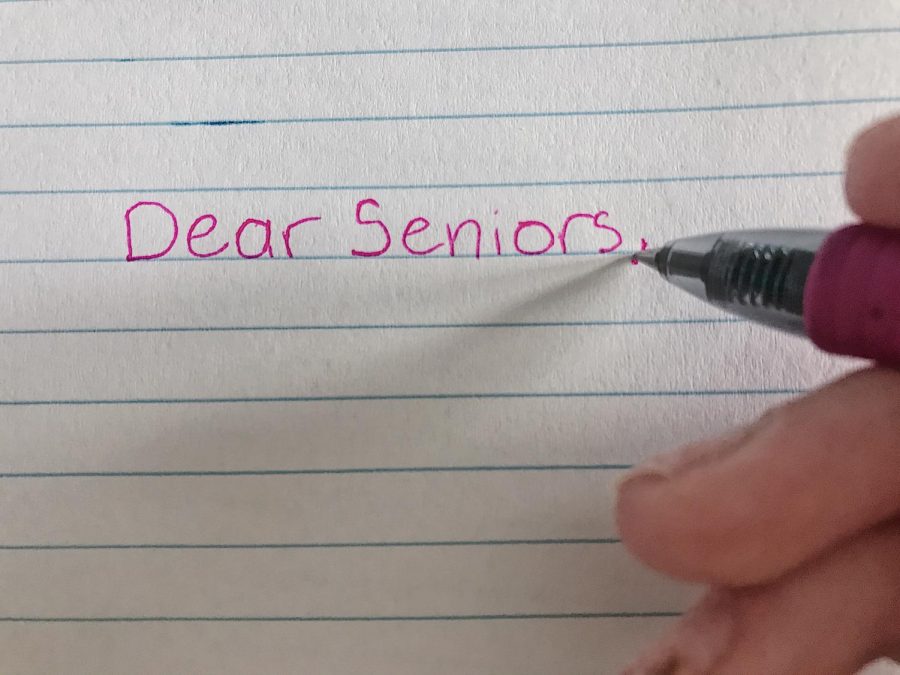 Dear Seniors,